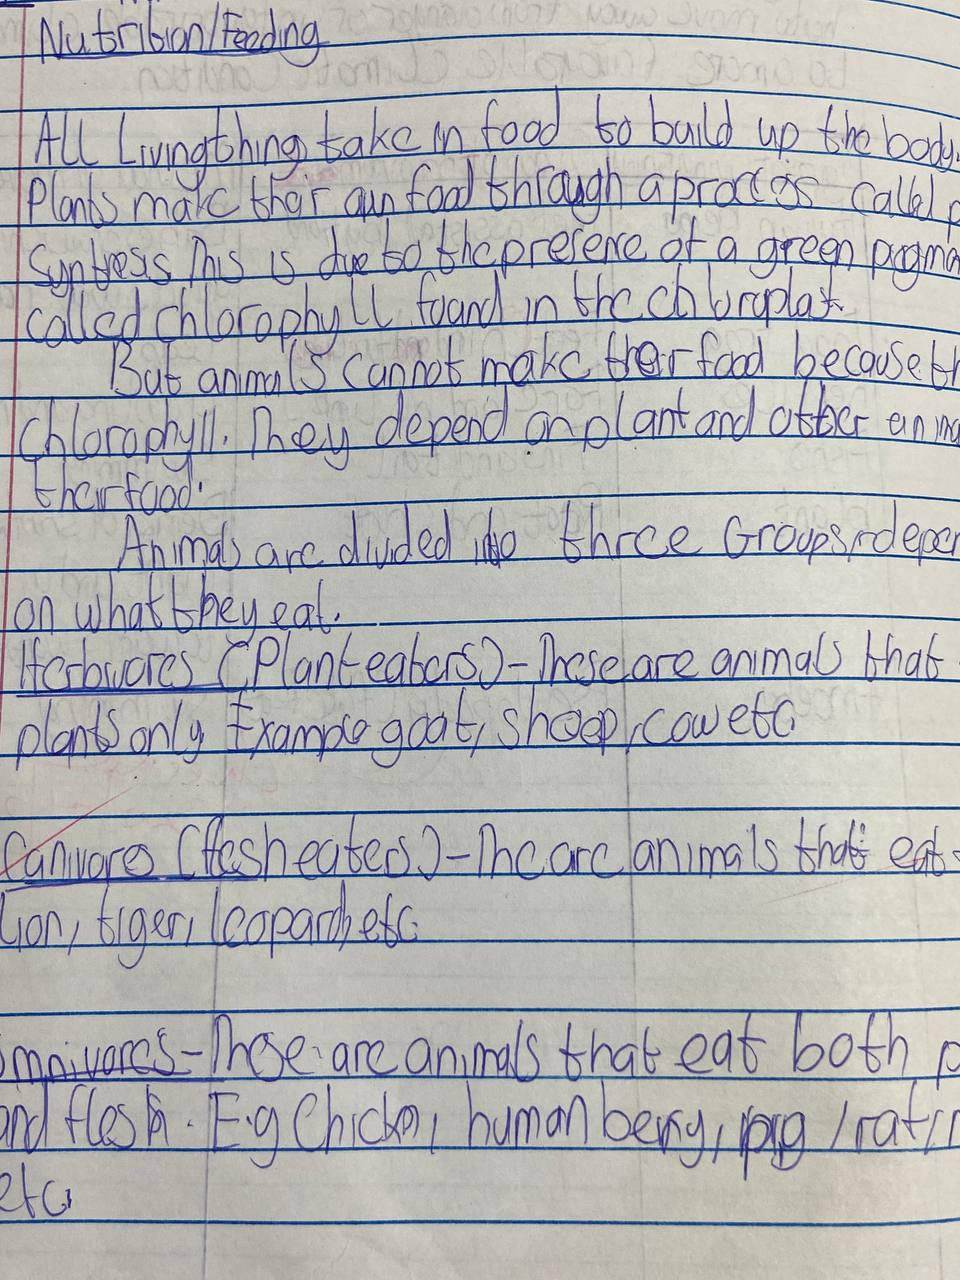 Nutribion/Feeding
All Livingthing take in food to build up the body.
Plants make their own food through a process called p
syntresis. This is due to the presene of a green pigme
called chlorophyll, found in the chloroplat.
But animals cannot make their food because th
Chlorophyll. They depend on plant and other anima
their food.
Animals are divided into three Groups, depen
on what they eat.
Herbivores (Plant eaters) - These are animals that
plants only Example goat, sheep, cow etc.
Canivores (flesh eaters) - The are animals that eat
Lion, tiger, leopard, etc
omnivores - These are animals that eat both p
and flesh. E.g Chicken, human being, pig, rat,
etc